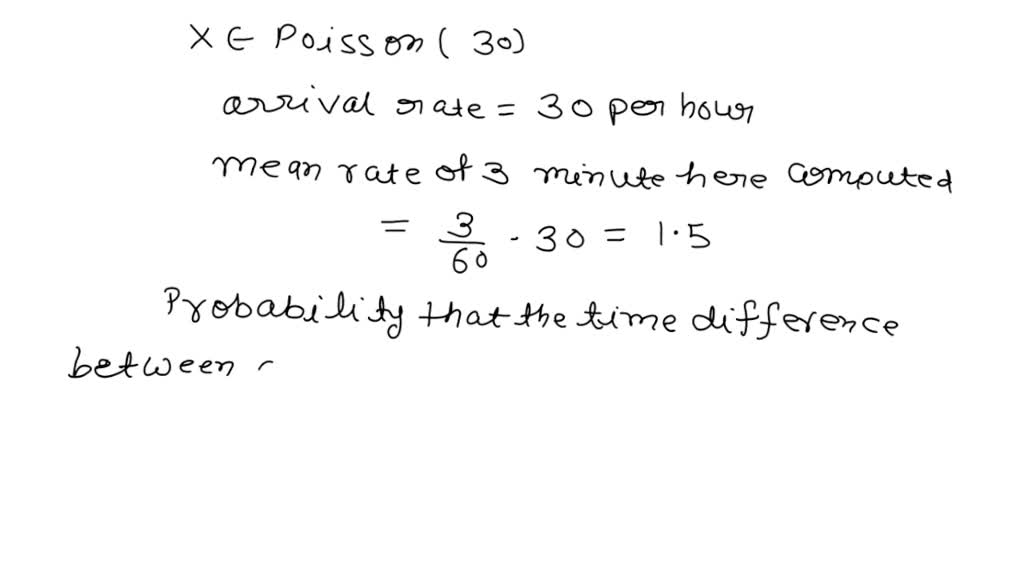 X ∈ Poisson ( 30)
arrival rate = 30 per hour
mean rate of 3 minute here computed
= 3/60 · 30 = 1.5
Probability that the time difference
between